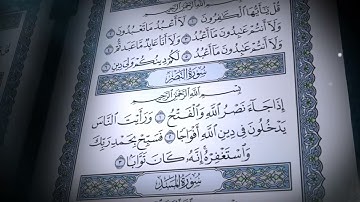 بِسْمِ اللَّهِ الرَّحْمَٰنِ الرَّحِيمِ
قُلْ يَا أَيُّهَا الْكَافِرُونَ ١ لَا أَعْبُدُ مَا تَعْبُدُونَ ٢
وَلَا أَنْتُمْ عَابِدُونَ مَا أَعْبُدُ ٣ وَلَا أَنَا عَابِدٌ مَا عَبَدْتُمْ ٤
وَلَا أَنْتُمْ عَابِدُونَ مَا أَعْبُدُ ٥ لَكُمْ دِينُكُمْ وَلِيَ دِينِ ٦
سُورَةُ النَّصْرِ
بِسْمِ اللَّهِ الرَّحْمَٰنِ الرَّحِيمِ
إِذَا جَاءَ نَصْرُ اللَّهِ وَالْفَتْحُ ١ وَرَأَيْتَ النَّاسَ
يَدْخُلُونَ فِي دِينِ اللَّهِ أَفْوَاجًا ٢ فَسَبِّحْ بِحَمْدِ رَبِّكَ
وَاسْتَغْفِرْهُ إِنَّهُ كَانَ تَوَّابًا ٣
سُورَةُ الْمَسَدِ